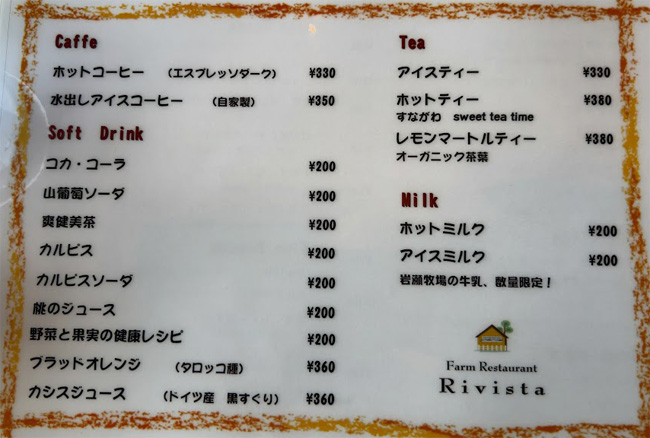 Caffe
ホットコーヒー （エスプレッソダーク） ¥330
水出しアイスコーヒー （自家製） ¥350
Soft Drink
コカ・コーラ ¥200
山葡萄ソーダ ¥200
爽健美茶 ¥200
カルピス ¥200
カルピスソーダ ¥200
桃のジュース ¥200
野菜と果実の健康レシピ ¥200
ブラッドオレンジ （タロッコ種） ¥360
カシスジュース （ドイツ産 黒すぐり） ¥360
Tea
アイスティー ¥330
ホットティー ¥380
すながわ sweet tea time
レモンマートルティー ¥380
オーガニック茶葉
Milk
ホットミルク ¥200
アイスミルク ¥200
岩瀬牧場の牛乳、数量限定！
Farm Restaurant
Rivista